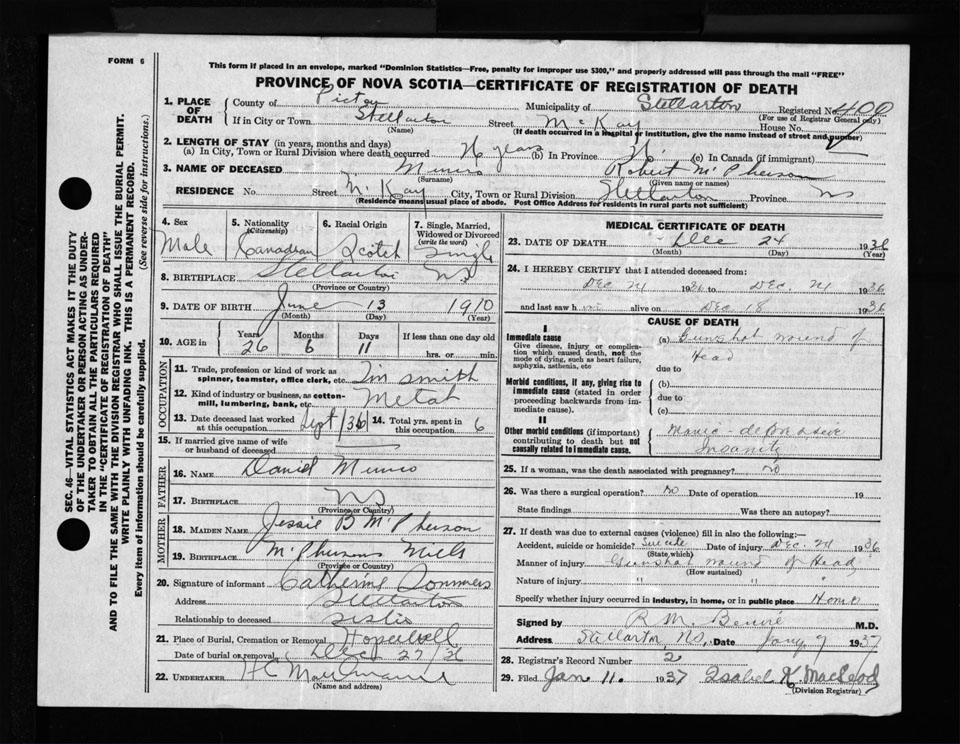 FORM 6
This form if placed in an envelope, marked "Dominion Statistics—Free, penalty for improper use $300," and properly addressed will pass through the mail "FREE"
PROVINCE OF NOVA SCOTIA—CERTIFICATE OF REGISTRATION OF DEATH
1. PLACE OF DEATH
County of Pictou Municipality of Stellarton Registered No. 400
(For use of Registrar General only)
If in City or Town Stellarton Street McKay House No.
(Name) (If death occurred in a Hospital or Institution, give the name instead of street and number)
2. LENGTH OF STAY (in years, months and days)
(a) In City, Town or Rural Division where death occurred 26 years (b) In Province (c) In Canada (if immigrant)
3. NAME OF DECEASED Munro Robert McPherson
(Surname) (Given name or names)
RESIDENCE No. Street McKay City, Town or Rural Division Stellarton Province NS
(Residence means usual place of abode. Post Office Address for residents in rural parts not sufficient)
4. Sex Male
5. Nationality (Citizenship) Canadian
6. Racial Origin Scotch
7. Single, Married, Widowed or Divorced (write the word) Single
8. BIRTHPLACE Stellarton NS
(Province or Country)
9. DATE OF BIRTH June 13 1910
(Month) (Day) (Year)
10. AGE in Years 26 Months 6 Days 11 If less than one day old hrs. or min.
OCCUPATION
11. Trade, profession or kind of work as spinner, teamster, office clerk, etc. Tin smith
12. Kind of industry or business, as cotton-mill, lumbering, bank, etc. Metal
13. Date deceased last worked at this occupation Sept/36
14. Total yrs. spent in this occupation 6
15. If married give name of wife or husband of deceased
FATHER
16. NAME Daniel Munro
17. BIRTHPLACE NS
(Province or Country)
MOTHER
18. MAIDEN NAME Jessie B McPherson
19. BIRTHPLACE McPhersons Mills
(Province or Country)
20. Signature of informant Catherine Sommers
Address Stellarton
Relationship to deceased sister
21. Place of Burial, Cremation or Removal Hopewell
Date of burial or removal Dec 27/36
22. UNDERTAKER
(Name and address)
MEDICAL CERTIFICATE OF DEATH
23. DATE OF DEATH Dec 24 1936
(Month) (Day) (Year)
24. I HEREBY CERTIFY that I attended deceased from:
Dec 24 1936 to Dec. 24 1936
and last saw h im alive on Dec 18 1936
CAUSE OF DEATH
I
Immediate cause
Give disease, injury or complication which caused death, not the mode of dying, such as heart failure, asphyxia, asthenia, etc
(a) Gunshot wound of Head
due to
Morbid conditions, if any, giving rise to immediate cause (stated in order proceeding backwards from immediate cause).
(b)
due to
(c)
II
Other morbid conditions (if important) contributing to death but not causally related to immediate cause.
Manic-depressive Insanity
25. If a woman, was the death associated with pregnancy? no
26. Was there a surgical operation? no Date of operation 19
State findings Was there an autopsy?
27. If death was due to external causes (violence) fill in also the following:
Accident, suicide or homicide? Suicide Date of injury Dec. 24 1936
(State which)
Manner of injury Gunshot wound of Head
(How sustained)
Nature of injury " " "
Specify whether injury occurred in industry, in home, or in public place Home
Signed by R M. Benvie M.D.
Address Stellarton, NS. Date Jany 9 1937
28. Registrar's Record Number 2
29. Filed Jan. 11. 1937 Isabel K. MacLeod
(Division Registrar)
SEC. 46—VITAL STATISTICS ACT MAKES IT THE DUTY OF THE UNDERTAKER OR PERSON ACTING AS UNDERTAKER TO OBTAIN ALL THE PARTICULARS REQUIRED IN THE "CERTIFICATE OF REGISTRATION OF DEATH" AND TO FILE THE SAME WITH THE DIVISION REGISTRAR WHO SHALL ISSUE THE BURIAL PERMIT.
WRITE PLAINLY WITH UNFADING INK. THIS IS A PERMANENT RECORD.
Every item of information should be carefully supplied. (See reverse side for instructions.)